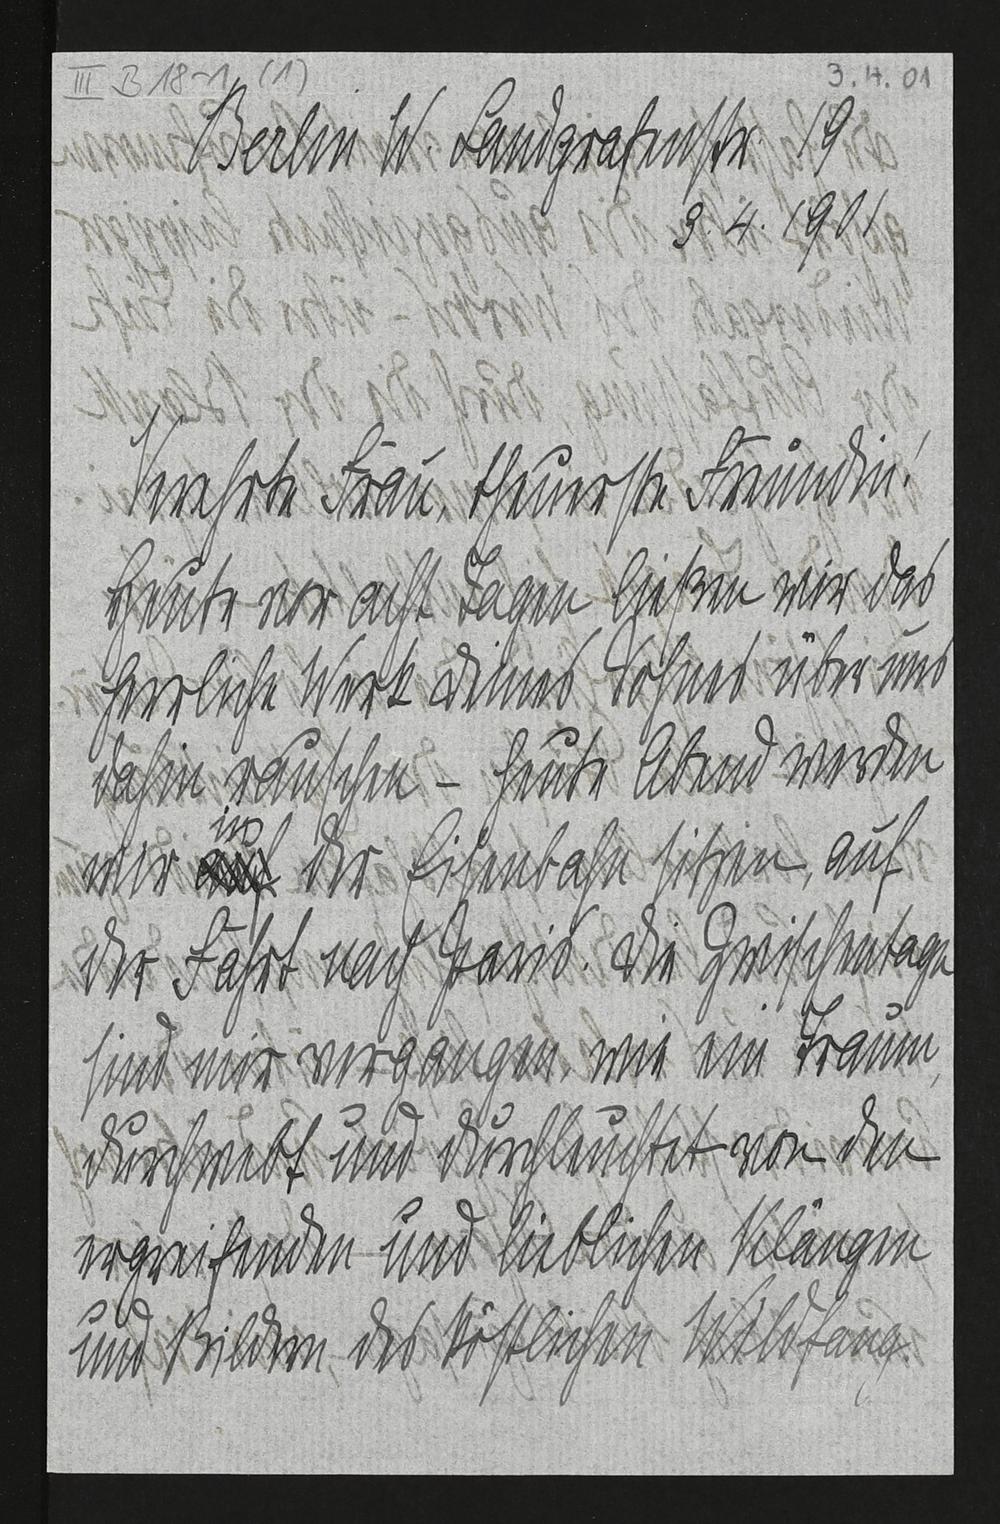 III B 18-1 (1)
3.4.01
Berlin W. Landgrafenstr. 19
3.4.1901
Verehrte Frau, theuerste Freundin!
Heute vor acht Tagen ließen wir das
herrliche Werk deines Sohnes über uns
dahin rauschen – heute Abend werden
in
wir auf der Eisenbahn sitzen, auf
der Fahrt nach Paris. Die Zwischentage
sind mir vergangen, wie ein Traum,
durchwebt und durchleuchtet von den
ergreifenden und lieblichen Klängen
und Bildern des köstlichen Wildfang.